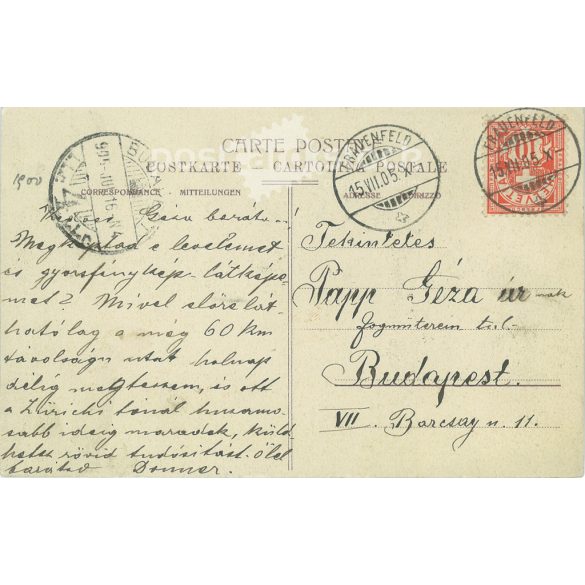 CARTE POSTALE
POSTKARTE — CARTOLINA POSTALE
CORRESPONDANCE - MITTEILUNGEN
ADRESSE INDIRIZZO
FRAUENFELD
15.VII.05.X
FRAUENFELD
15.VII.05.X
HELVETIA
10
1900
Kedves Géza barátom
Megkaptad e levelemet
és gyorsfénykép-látképe-
met? Mivel előrelát-
hatólag a még 60 km
távolságu utat holnap
délig megteszem, és ott
a Zürichi tónál huzamo-
sabb ideig maradok, küld
hetsz rövid tudósítást. Ölel
barátod Donner.
Tekintetes
Papp Géza úr nak
fogműterem tul.
Budapest.
VII. Barcsay u. 11.